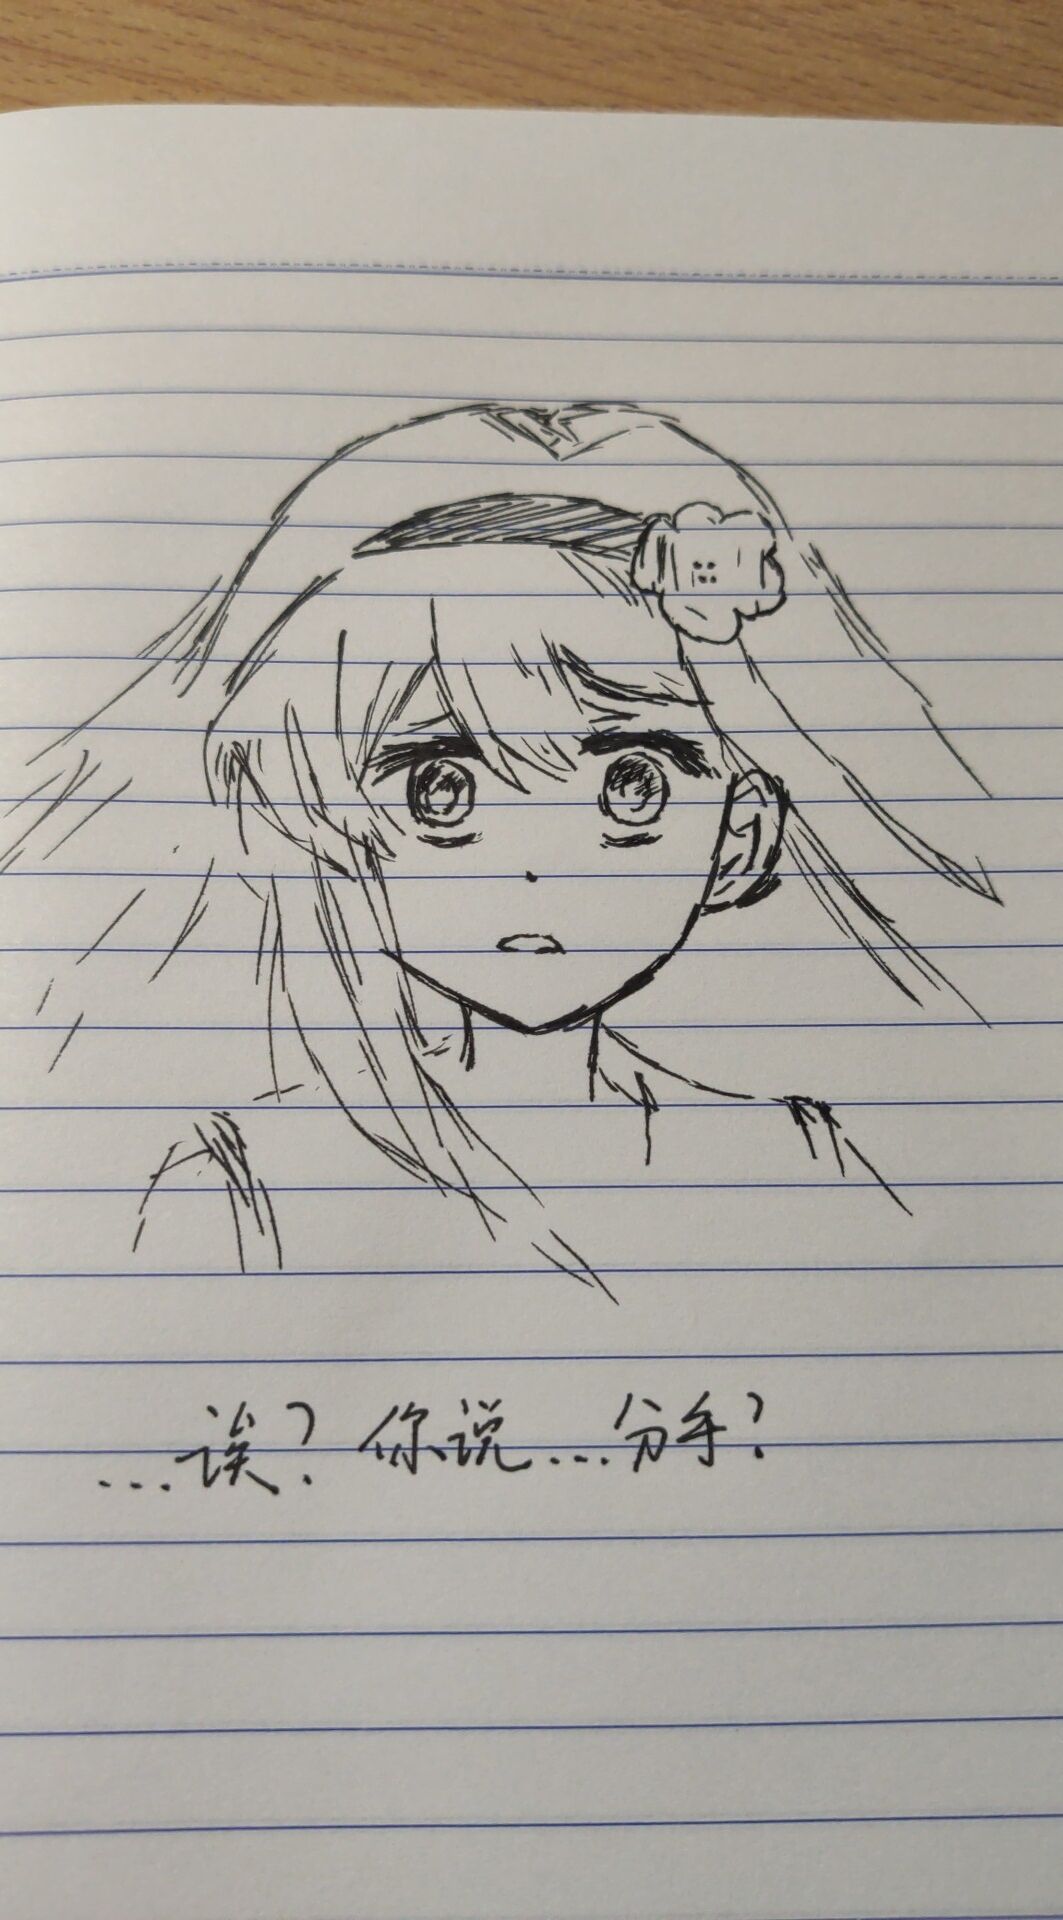 ...诶？你说...分手？